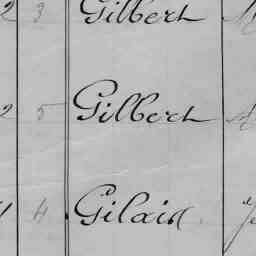 2 3 Gilbert
2 5 Gilbert
4 Gilain